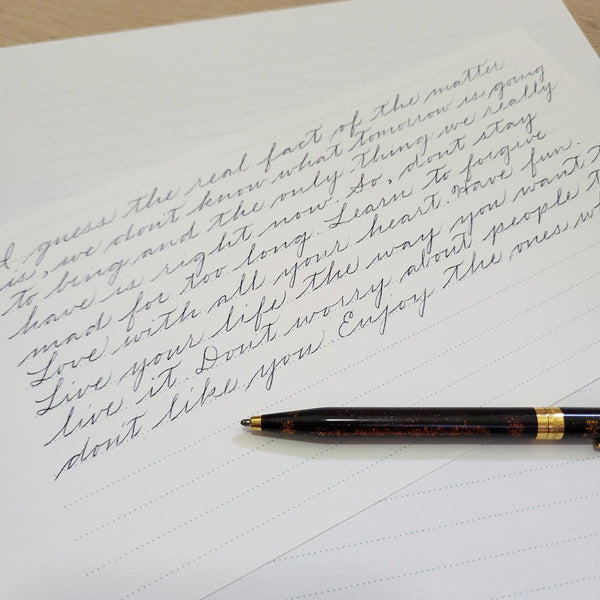 I guess the real fact of the matter
is, we don't know what tomorrow is going
to bring and the only thing we really
have is right now. So, don't stay
mad for too long. Learn to forgive.
Love with all your heart. Have fun.
Live your life the way you want t
live it. Don't worry about people t
don't like you. Enjoy the ones w